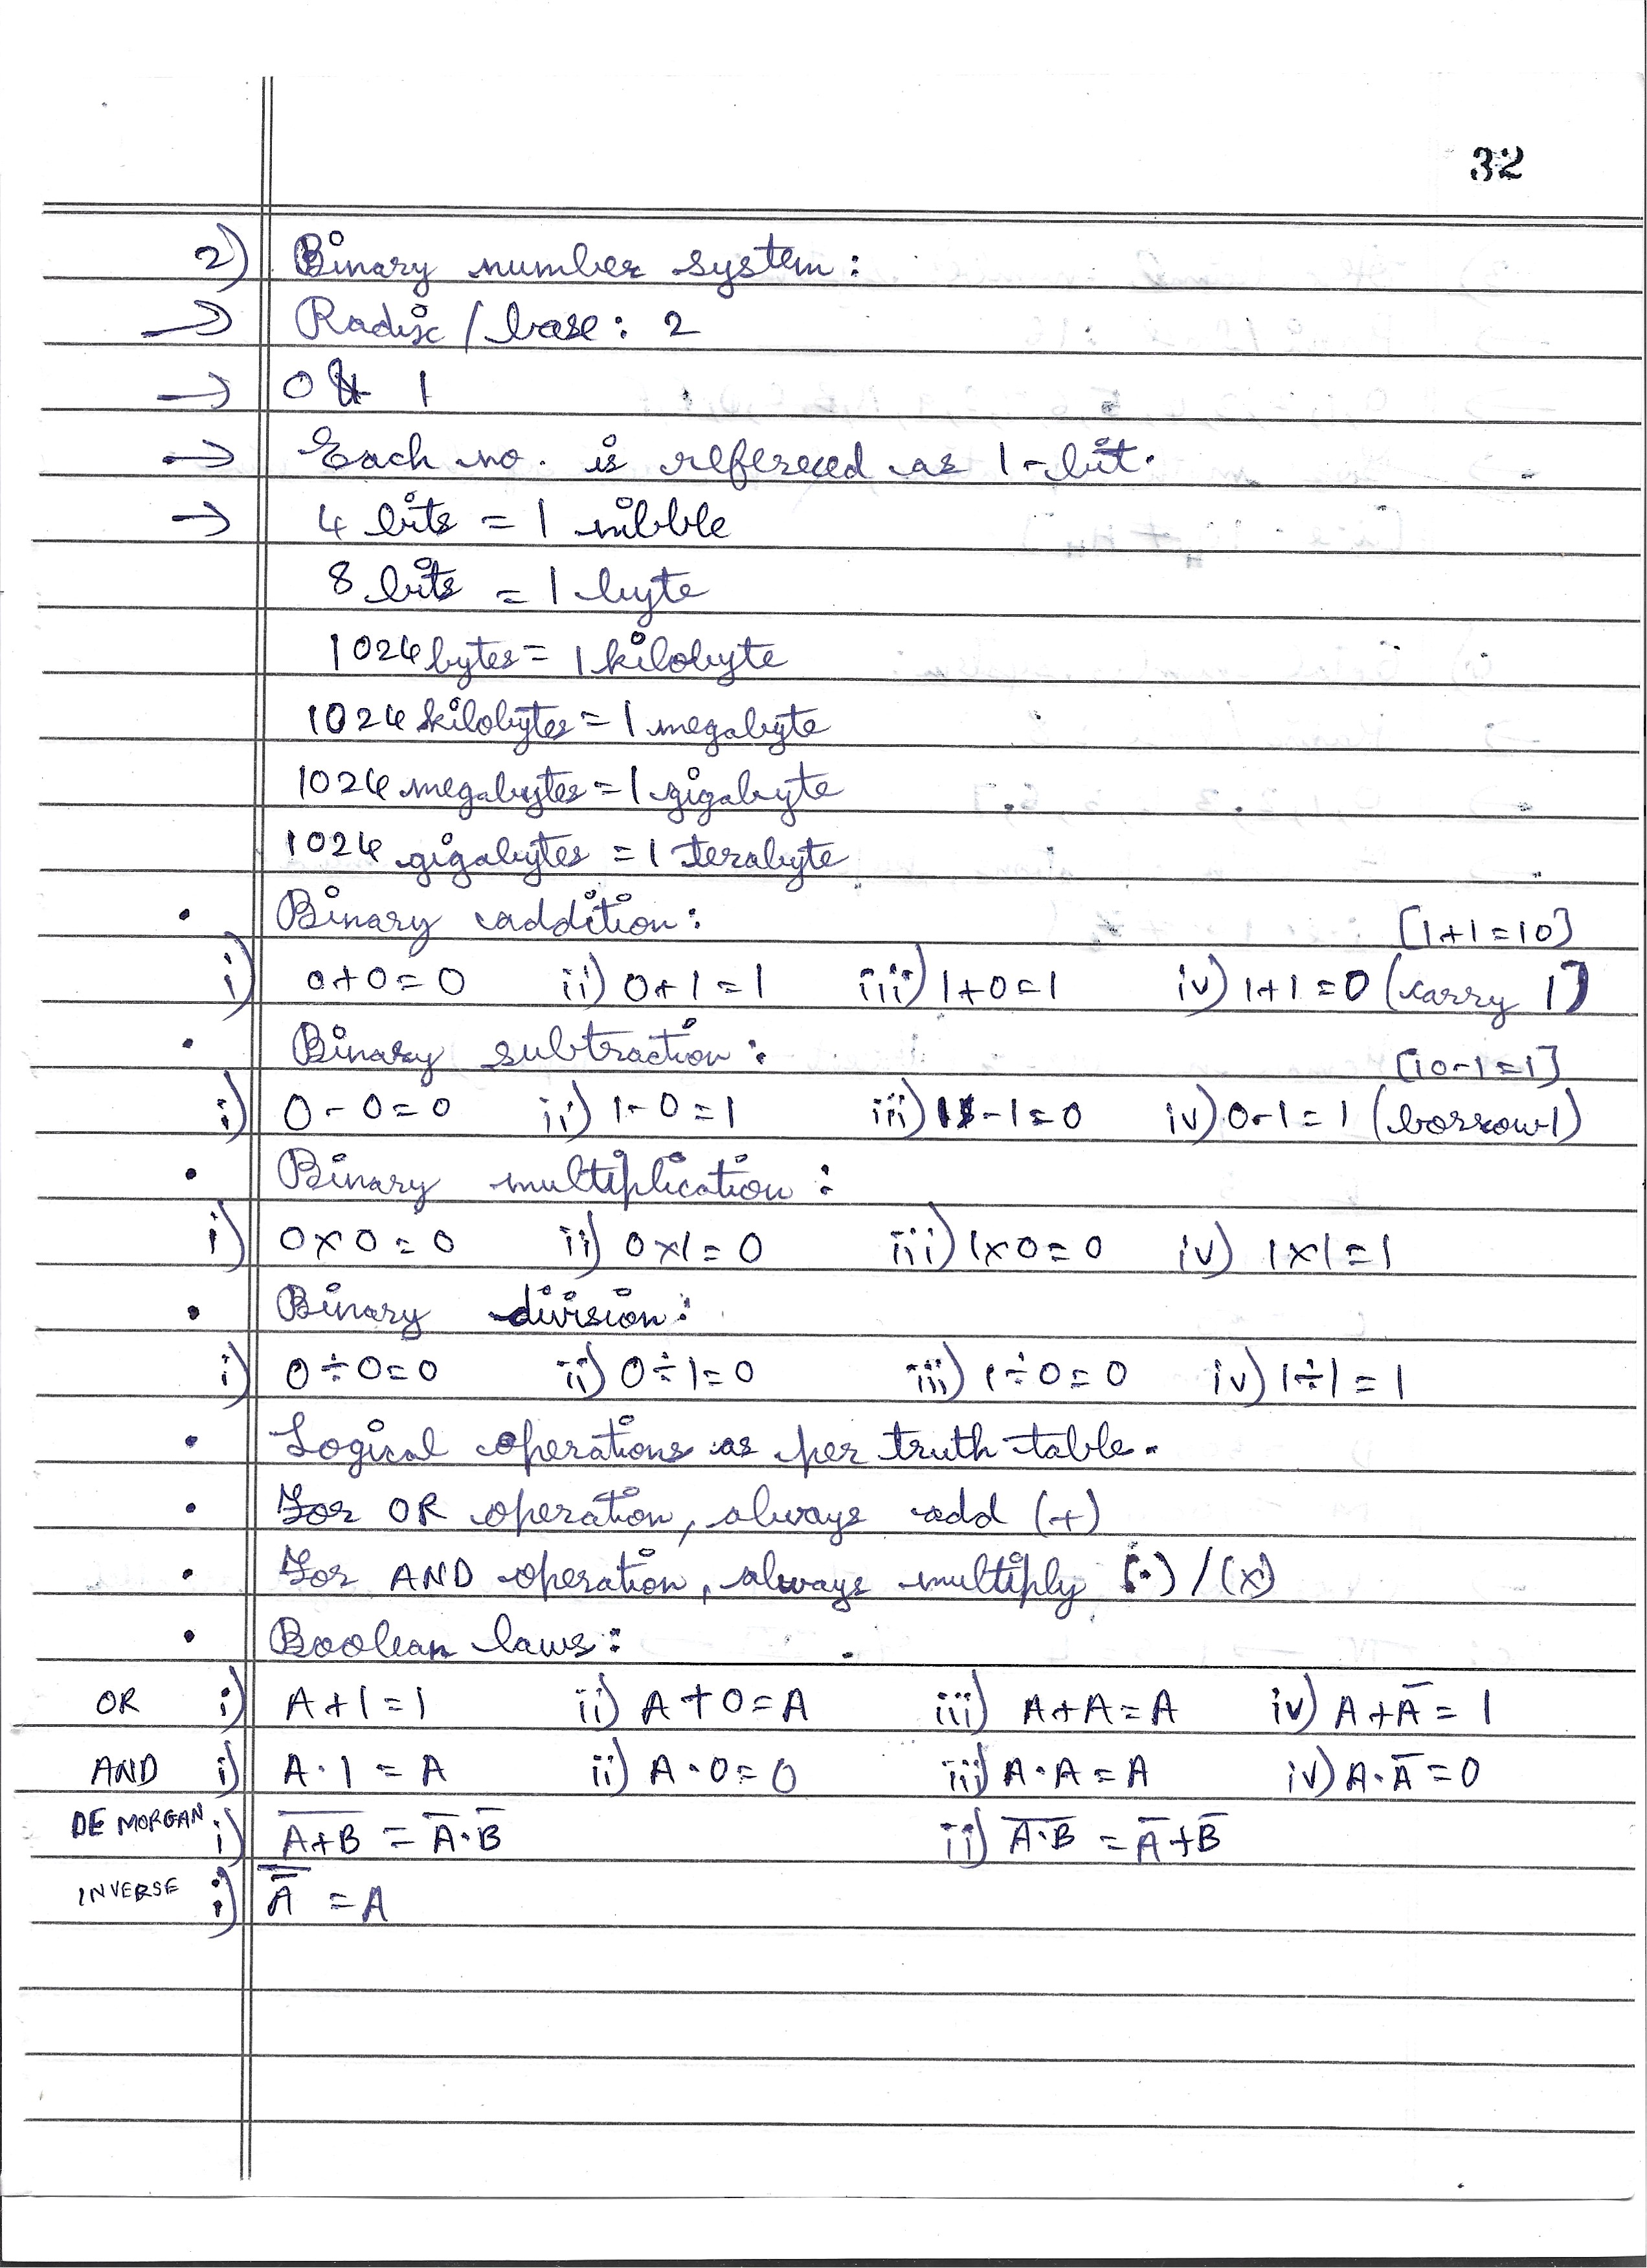 32
2) Binary number system:
→ Radix / base: 2
→ 0 & 1
→ Each no. is refereed as 1-bit.
→ 4 bits = 1 nibble
8 bits = 1 byte
1024 bytes = 1 kilobyte
1024 kilobytes = 1 megabyte
1024 megabytes = 1 gigabyte
1024 gigabytes = 1 terabyte
• Binary addition: [1+1=10]
i) 0+0=0 ii) 0+1=1 iii) 1+0=1 iv) 1+1=0 (carry 1)
• Binary subtraction: [10-1=1]
i) 0-0=0 ii) 1-0=1 iii) 1-1=0 iv) 0-1=1 (borrow 1)
• Binary multiplication:
i) 0×0=0 ii) 0×1=0 iii) 1×0=0 iv) 1×1=1
• Binary division:
i) 0÷0=0 ii) 0÷1=0 iii) 1÷0=0 iv) 1÷1=1
• Logical operations as per truth table.
• For OR operation, always add (+)
• For AND operation, always multiply (·) / (x)
• Boolean laws:
OR i) A+1=1 ii) A+0=A iii) A+A=A iv) A+A̅=1
AND i) A·1=A ii) A·0=0 iii) A·A=A iv) A·A̅=0
DE MORGAN i) A̅+̅B̅ = A̅·B̅ ii) A̅·̅B̅ = A̅+B̅
INVERSE i) A̿ = A